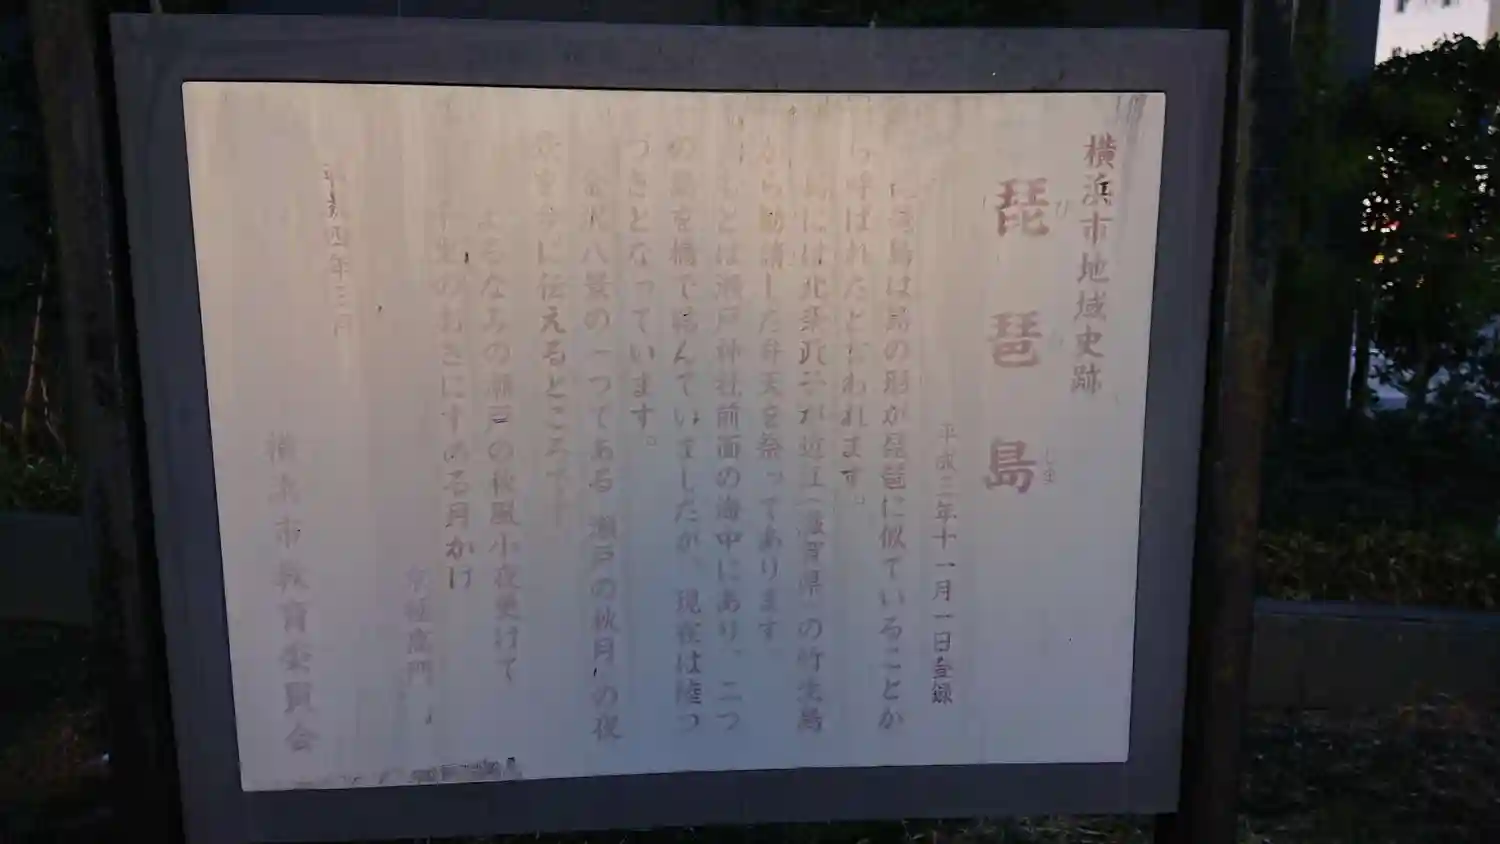 横浜市地域史跡
琵琶島
び
しま
平成三年十一月一日登録
琵琶島は島の形が琵琶に似ていることか
ら呼ばれたといわれます。
島には北条政子が近江(滋賀県)の竹生島
から勧請した弁天を祭ってあります。
もとは瀬戸神社前面の海中にあり、二つ
の島を橋で結んでいましたが、現在は陸つ
づきとなっています。
金沢八景の一つである「瀬戸の秋月」の夜
に伝えるところで
よるなみの瀬戸の秋風小夜更けて
千里のおきにすめる月かげ
京極高門
平成四年三月
横浜市教育委員会